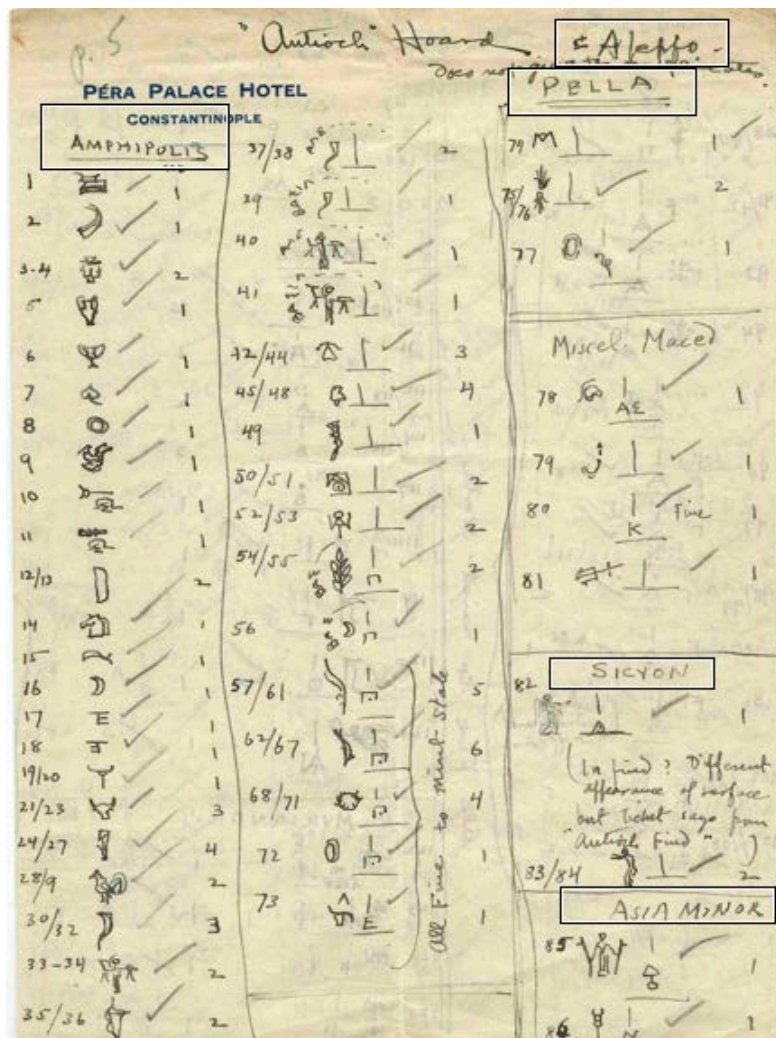 p. 5
"Antioch" Hoard
= Aleppo.
Does not
PÉRA PALACE HOTEL
CONSTANTINOPLE
AMPHIPOLIS
1 1
2 1
3-4 2
5 1
6 1
7 1
8 1
9 1
10 1
11 1
12/13 2
14 1
15 1
16 1
17 E 1
18 1
19/20
21/23 3
24/27 4
28/9 2
30/32 3
33-34 2
35/36 2
37/38 2
39 1
40 1
41 1
42/44 3
45/48 4
49 1
50/51 2
52/53 2
54/55 2
56 1
57/61 5
62/67 6
68/71 4
72 1
73 E 1
All Fine to Mint State
PELLA
74 1
75/76 2
77 1
Miscel. Maced
78 AE 1
79 1
80 K Fine 1
81 1
SICYON
82 1
(In find? Different
appearance of surface
but ticket says from
"Antioch Find")
83/84 2
ASIA MINOR
85 1
86 1